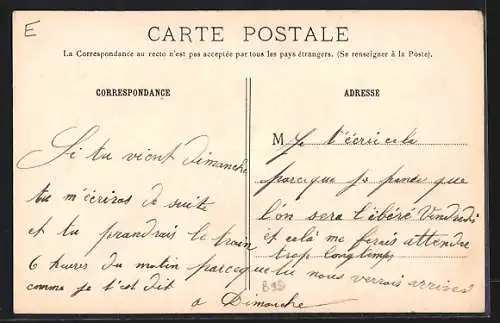 E
CARTE POSTALE
La Correspondance au recto n'est pas acceptée par tous les pays étrangers. (Se renseigner à la Poste).
CORRESPONDANCE
Si tu vient Dimanche
tu m'écriras de suite
et tu prandrais le train
6 heures du matin parceque
comme je t'est dit
a Dimanche
ADRESSE
M Je t'écris cela
parceque je panse que
l'on sera libéré Vendredi
et cela me ferais attendre
trop longtemps
tu nous verrais arrivés